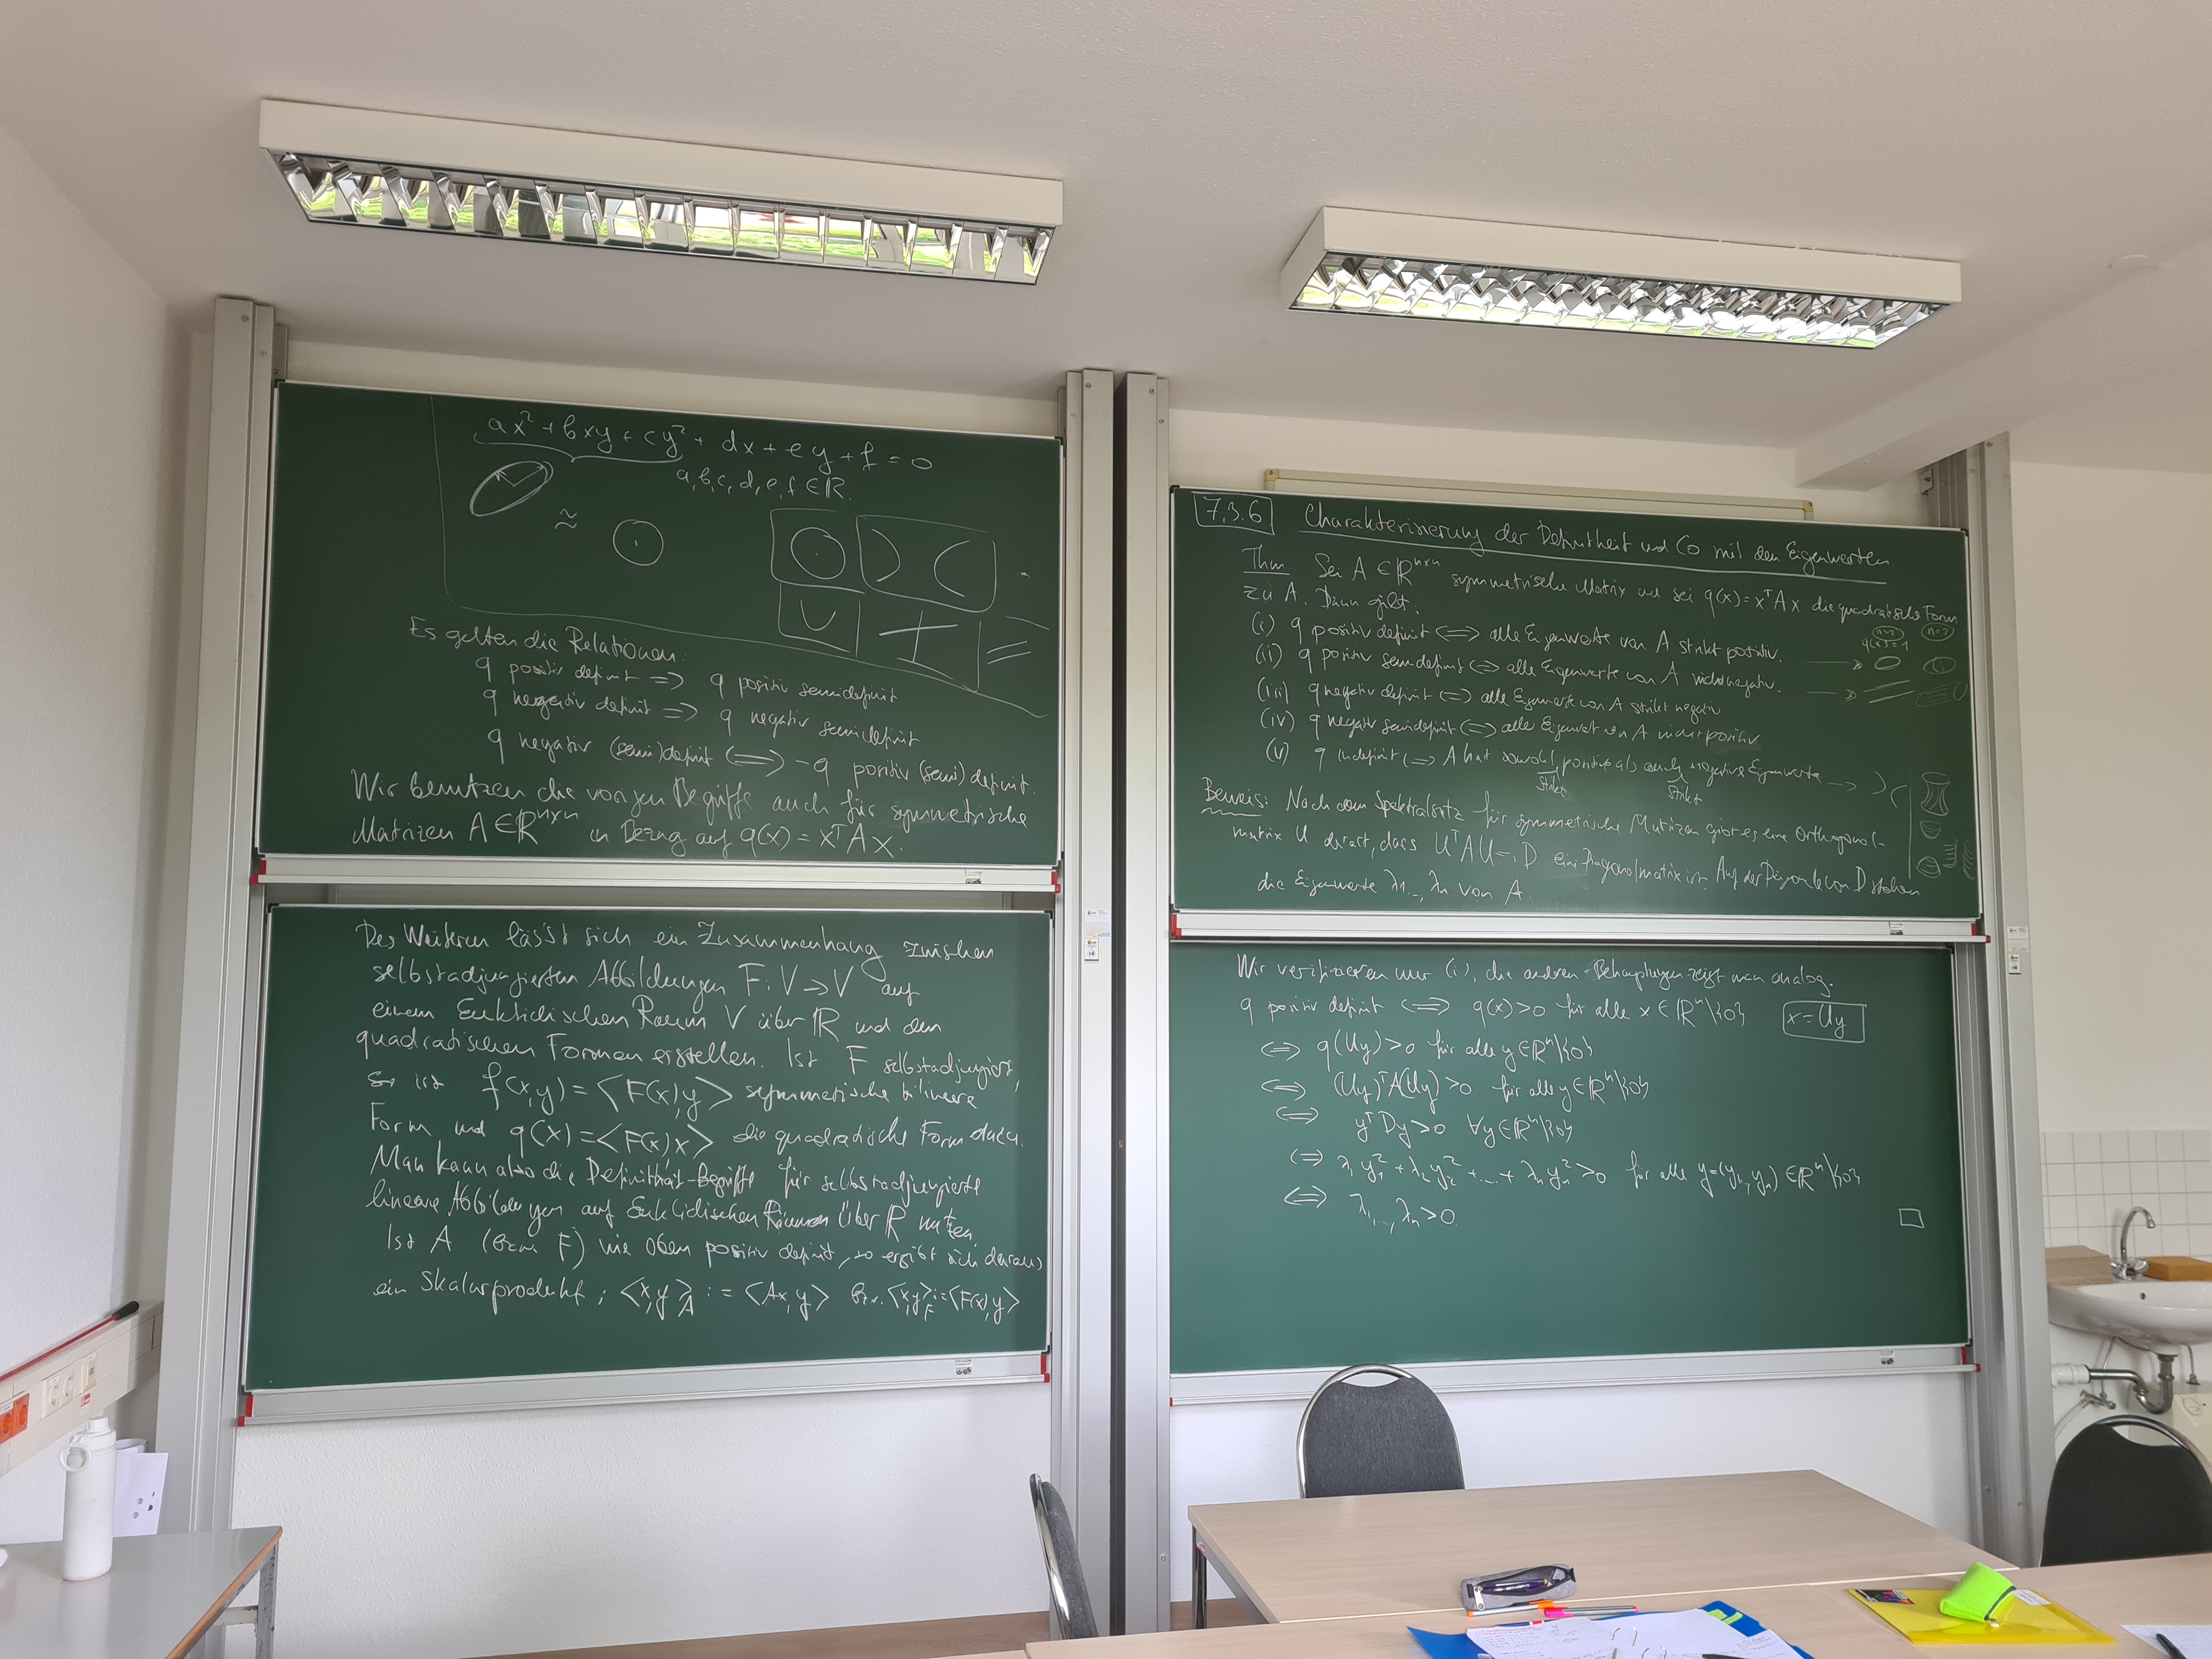 ax² + bxy + cy² + dx + ey + f = 0
a, b, c, d, e, f ∈ ℝ.
≈
Es gelten die Relationen:
q positiv definit ⟹ q positiv semidefinit
q negativ definit ⟹ q negativ semidefinit
q negativ (semi)definit ⟺ -q positiv (semi)definit.
Wir benutzen die vorigen Begriffe auch für symmetrische
Matrizen A ∈ ℝⁿˣⁿ in Bezug auf q(x) = xᵀAx.
Des Weiteren lässt sich ein Zusammenhang zwischen
selbstadjungierten Abbildungen F: V → V auf
einem Euklidischen Raum V über ℝ und den
quadratischen Formen erstellen. Ist F selbstadjungiert,
so ist f(x,y) = ⟨F(x),y⟩ symmetrische bilineare
Form und q(x) = ⟨F(x),x⟩ die quadratische Form dazu.
Man kann also die Definitheit-Begriffe für selbstadjungierte
lineare Abbildungen auf Euklidischen Räumen über ℝ nutzen.
Ist A (bzw. F) wie oben positiv definit, so ergibt sich daraus
ein Skalarprodukt: ⟨x,y⟩_A := ⟨Ax,y⟩ bzw. ⟨x,y⟩_F := ⟨F(x),y⟩
7.3.6 Charakterisierung der Definitheit und Co mit den Eigenwerten
Thm Sei A ∈ ℝⁿˣⁿ symmetrische Matrix und sei q(x) = xᵀAx die quadratische Form
zu A. Dann gilt:
(i) q positiv definit ⟺ alle Eigenwerte von A strikt positiv.
(ii) q positiv semidefinit ⟺ alle Eigenwerte von A nichtnegativ.
(iii) q negativ definit ⟺ alle Eigenwerte von A strikt negativ
(iv) q negativ semidefinit ⟺ alle Eigenwert von A nicht positiv
(v) q indefinit ⟺ A hat sowohl positive als auch negative Eigenwerte
strikt strikt
q(x)=1
Beweis: Nach dem Spektralsatz für symmetrische Matrizen gibt es eine Orthogonal-
matrix U derart, dass UᵀAU =: D eine Diagonalmatrix ist. Auf der Diagonale von D stehen
die Eigenwerte λ₁,…,λₙ von A.
Wir verifizieren nur (i), die anderen Behauptungen zeigt man analog.
q positiv definit ⟺ q(x) > 0 für alle x ∈ ℝⁿ\{0} x = Uy
⟺ q(Uy) > 0 für alle y ∈ ℝⁿ\{0}
⟺ (Uy)ᵀA(Uy) > 0 für alle y ∈ ℝⁿ\{0}
⟺ yᵀDy > 0 ∀y ∈ ℝⁿ\{0}
⟺ λ₁y₁² + λ₂y₂² + … + λₙyₙ² > 0 für alle y = (y₁,…,yₙ) ∈ ℝⁿ\{0}
⟺ λ₁,…,λₙ > 0.
□